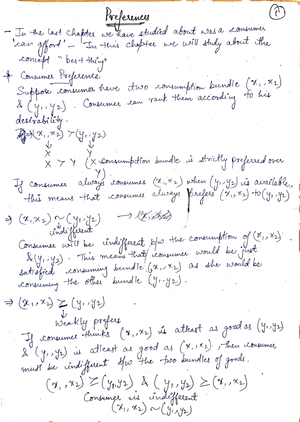 Preferences
①
- In the last chapter we have studied about was a consumer
"can afford" - In this chapter we will study about the
concept "best things"
* Consumer Preference
Suppose consumer have two consumption bundle (x₁, x₂)
& (y₁, y₂). Consumer can rank them according to his
desirability.
⇒ (x₁, x₂) > (y₁, y₂)
↓ ↓
X Y
X > Y (X consumption bundle is strictly preferred over
Y)
If consumer always consumes (x₁, x₂) when (y₁, y₂) is available,
this means that consumer always prefers (x₁, x₂) to (y₁, y₂)
⇒ (x₁, x₂) ~ (y₁, y₂) →
indifferent
Consumer will be indifferent b/w the consumption of (x₁, x₂)
& (y₁, y₂). This means that consumer would be just
satisfied consuming bundle (x₁, x₂) as she would be
consuming the other bundle (y₁, y₂).
⇒ (x₁, x₂) ≥ (y₁, y₂)
↓
Weakly prefers
If consumer thinks (x₁, x₂) is atleast as good as (y₁, y₂)
& (y₁, y₂) is atleast as good as (x₁, x₂), then consumer
must be indifferent b/w the two bundles of goods.
(x₁, x₂) ≥ (y₁, y₂) & (y₁, y₂) ≥ (x₁, x₂)
Consumer is indifferent
(x₁, x₂) ~ (y₁, y₂)